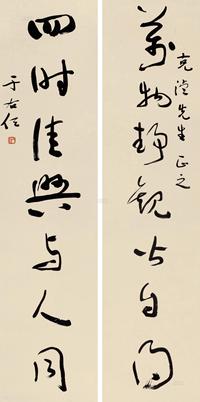 萬物静觀皆自得
克瀅先生正之
四时佳興与人同
于右任